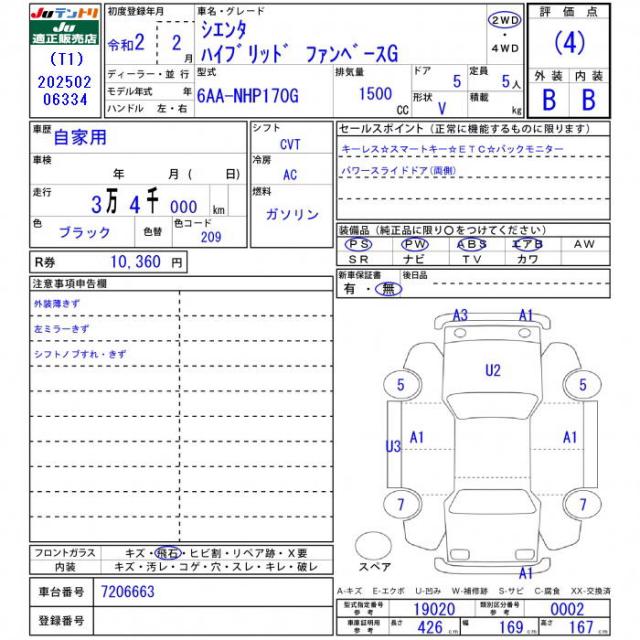 Juテントリ
Ju
適正販売店
(T1)
202502
06334
初度登録年月
令和2 年 2 月
ディーラー・並行
モデル年式 年
ハンドル 左・右
車名・グレード
シエンタ
ハイブリッド ファンベースG
2WD
・
4WD
型式
6AA-NHP170G
排気量
1500 CC
ドア 5
定員 5人
形状 V
積載 kg
評価点
(4)
外装 内装
B B
車歴 自家用
車検
年 月( 日)
走行
3万4千000 km
色 ブラック 色替 色コード 209
シフト
CVT
冷房
AC
燃料
ガソリン
R券 10,360 円
セールスポイント(正常に機能するものに限ります)
キーレス☆スマートキー☆ETC☆バックモニター
パワースライドドア(両側)
装備品(純正品に限り○をつけてください)
PS PW ABS エアB AW
SR ナビ TV カワ
新車保証書 後日品
有・無
注意事項申告欄
外装薄きず
左ミラーきず
シフトノブすれ・きず
フロントガラス キズ・飛石・ヒビ割・リペア跡・X要
内装 キズ・汚レ・コゲ・穴・スレ・キレ・破レ
車台番号 7206663
登録番号
A3 A1
U2
5 5
U3 A1 A1
7 7
スペア
A1
A-キズ E-エクボ U-凹み W-補修跡 S-サビ C-腐食 XX-交換済
型式指定番号 参考 19020 類別区分番号 参考 0002
車庫証明用 参考 長さ 426 cm 幅 169 cm 高さ 167 cm